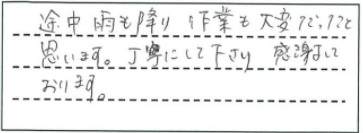 途中雨も降り 作業も大変だったと
思います。丁寧にして下さり 感謝して
おります。